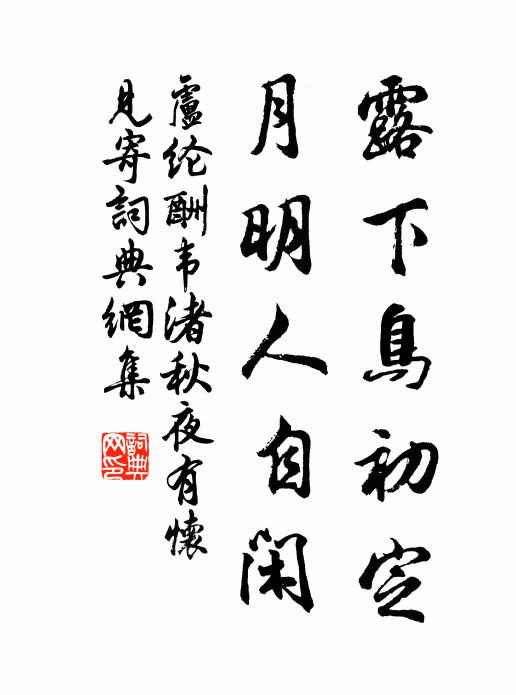 露下鳥初定
月明人自閑
盧纶酬韦渚秋夜有懷
見寄詞典網集
詞典网印